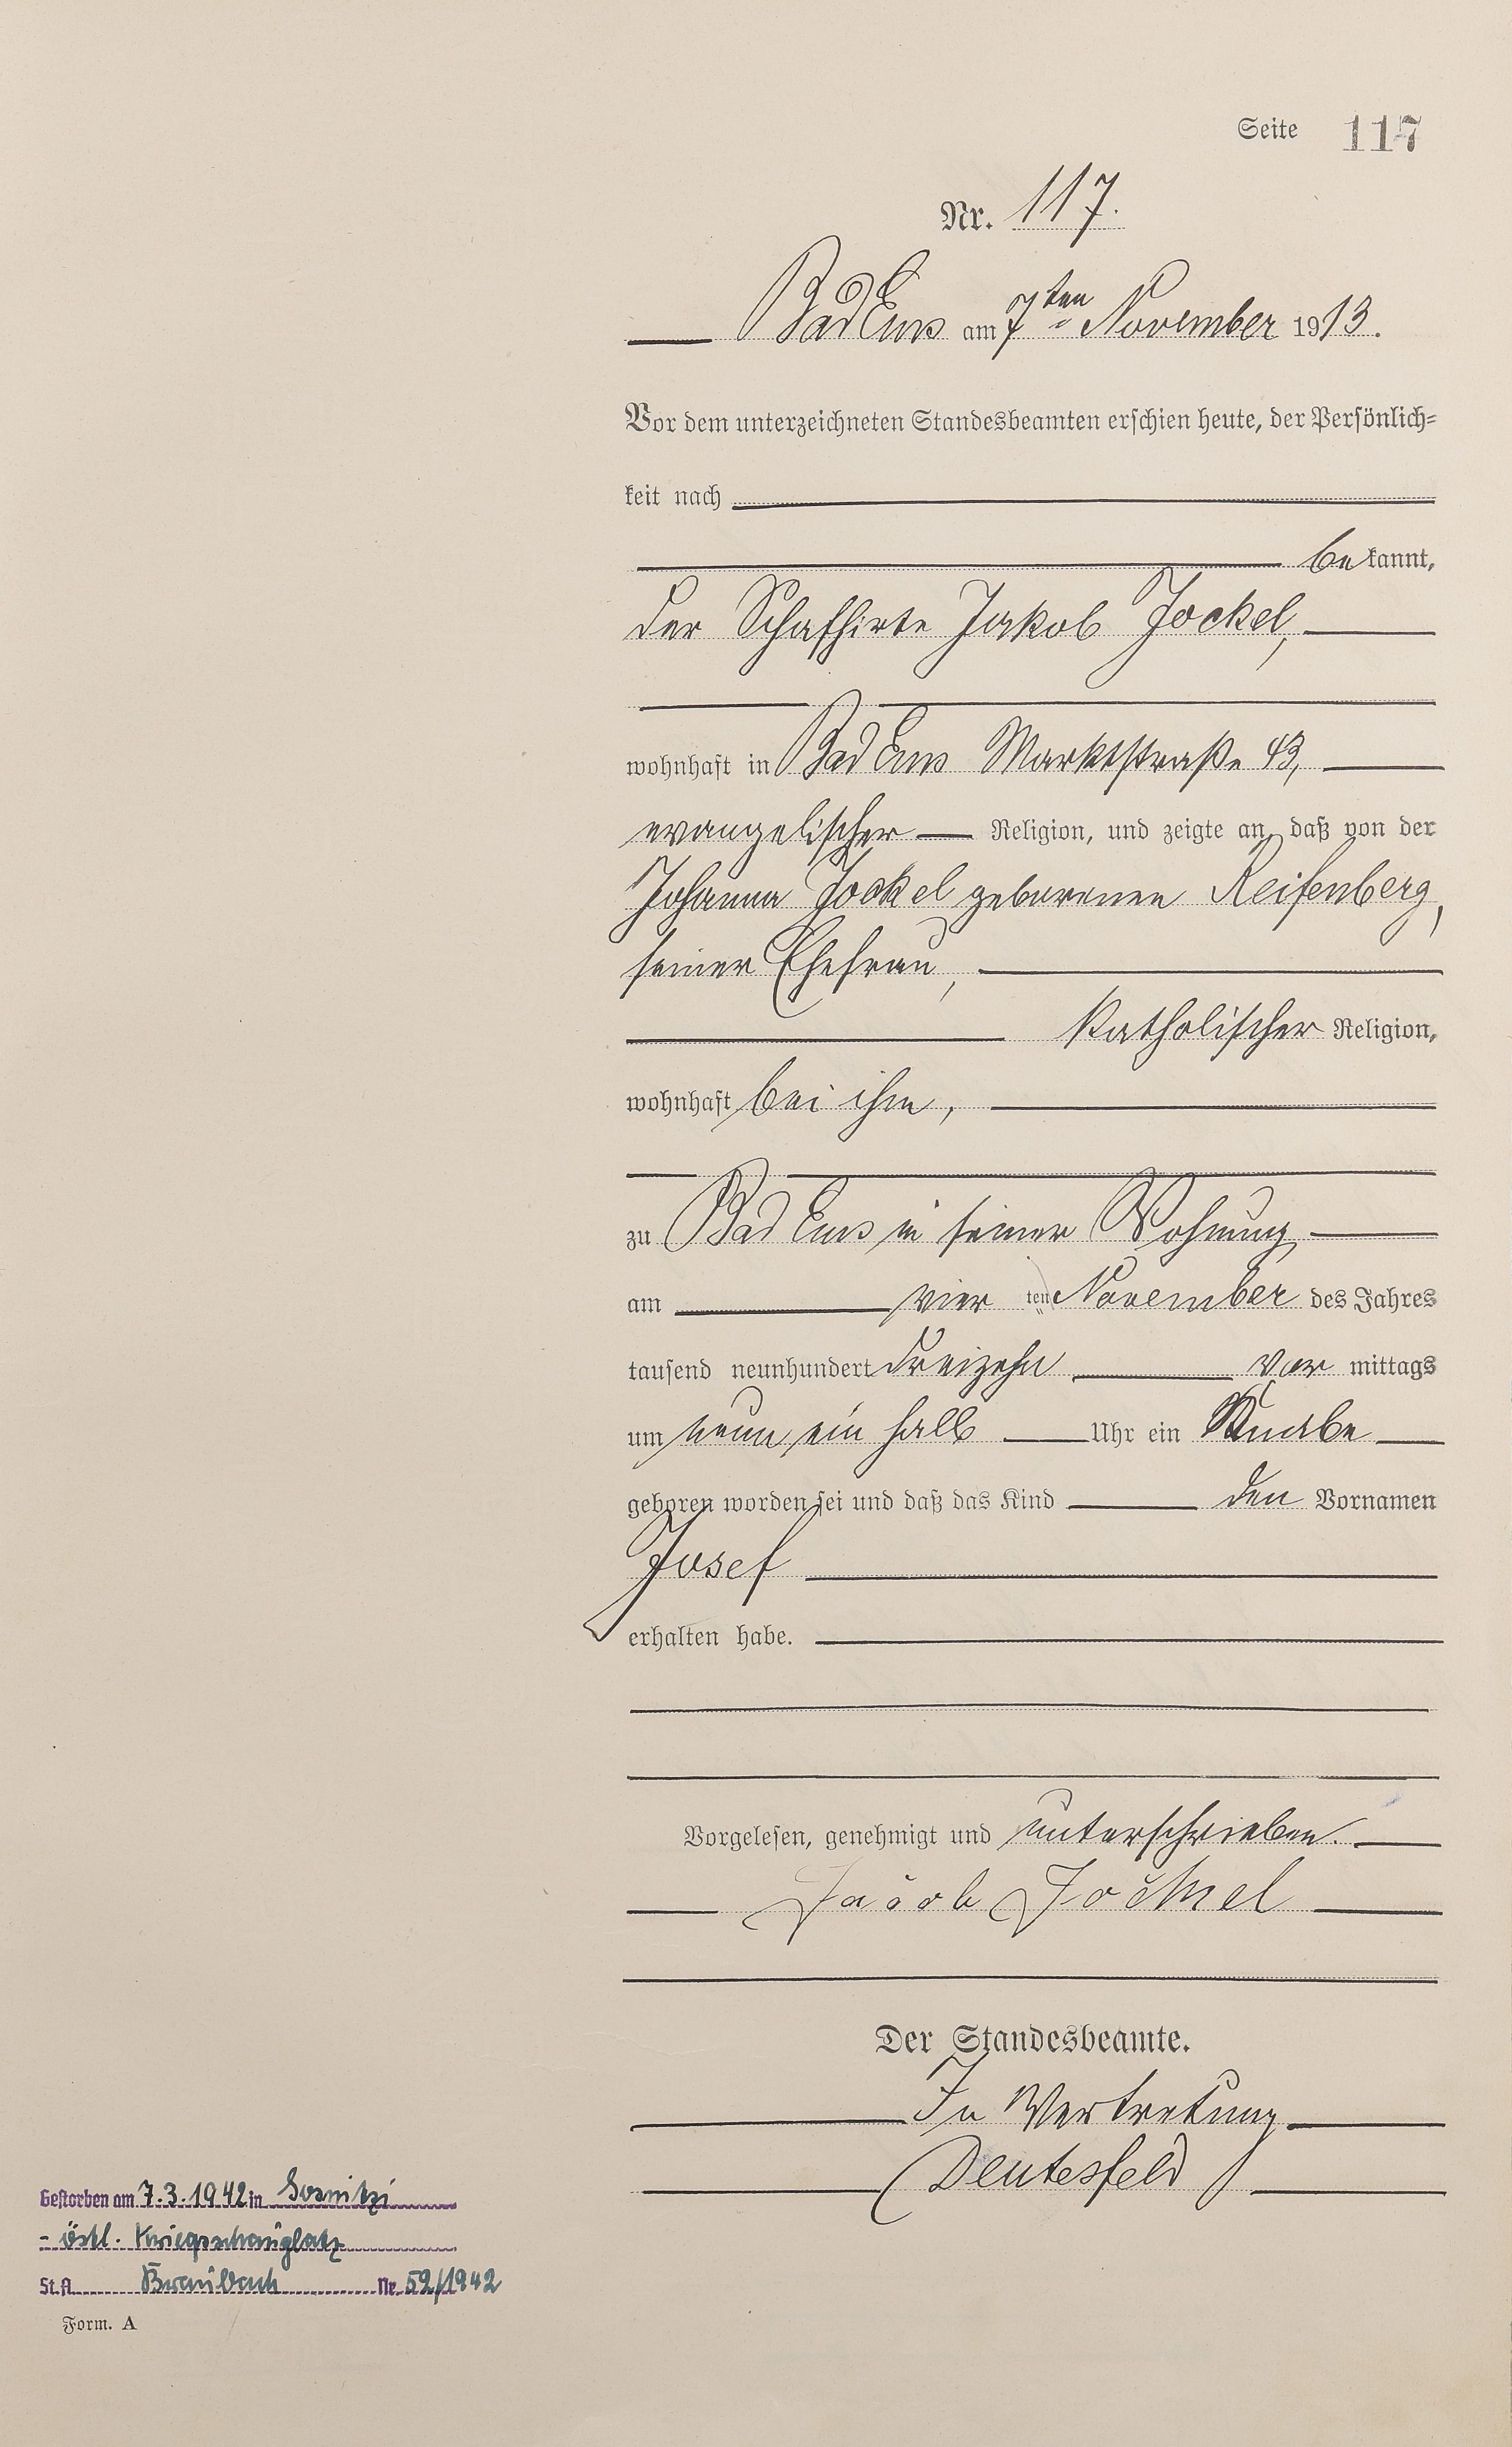 Seite 117
Nr. 117.
Bad Ems am 7ten November 1913.
Vor dem unterzeichneten Standesbeamten erschien heute, der Persönlich=
keit nach
bekannt,
der Schafhirte Jakob Jockel,
wohnhaft in Bad Ems Marktstraße 43,
evangelischer Religion, und zeigte an, daß von der
Johanna Jockel geborenen Reifenberg,
seiner Ehefrau,
katholischer Religion,
wohnhaft bei ihm,
zu Bad Ems in seiner Wohnung
am vier ten November des Jahres
tausend neunhundert dreizehn vor mittags
um neun ein halb Uhr ein Knabe
geboren worden sei und daß das Kind den Vornamen
Josef
erhalten habe.
Vorgelesen, genehmigt und unterschrieben.
Jacob Jockel
Der Standesbeamte.
In Vertretung
Deutesfeld
Gestorben am 7.3.1942 in
- östl. Kriegsschauplatz
St.A. Braubach Nr. 52/1942
Form. A